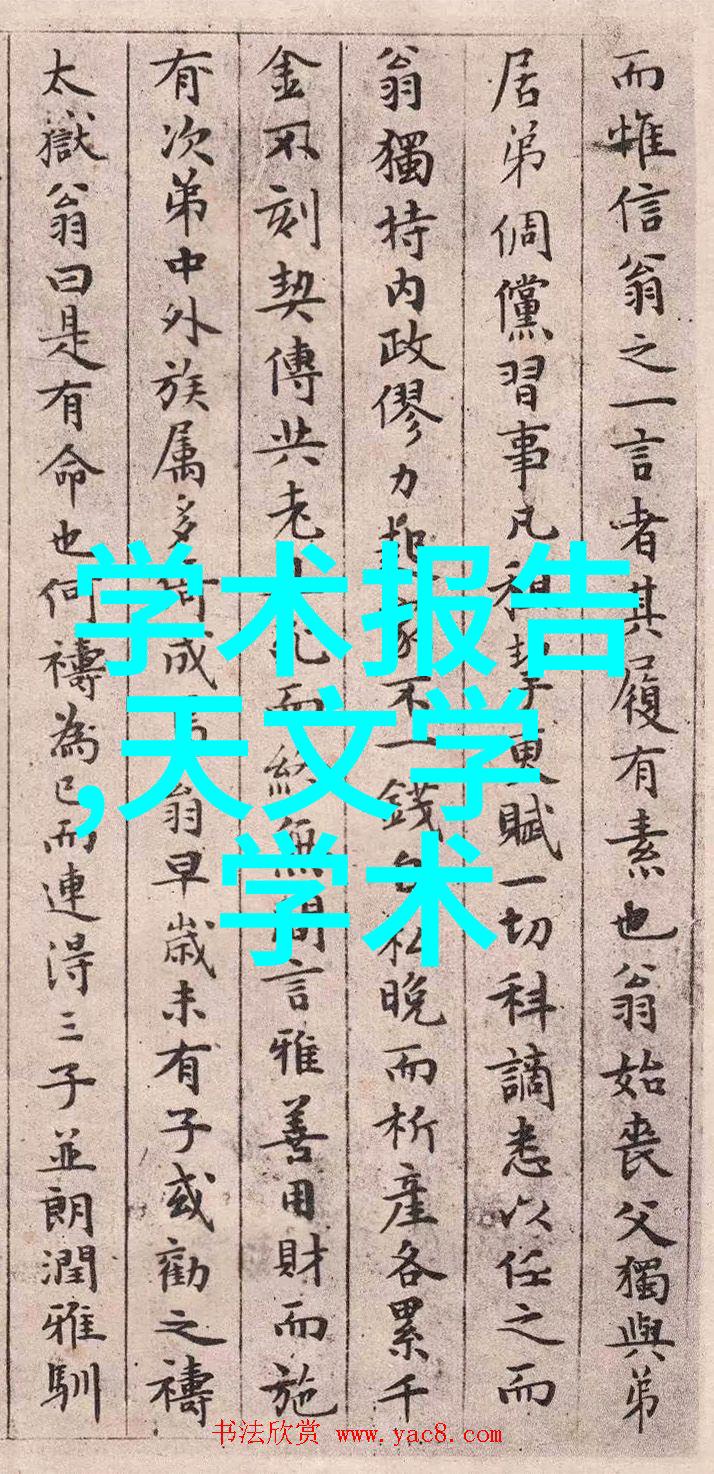 而惟信翁之一言者其履有素也翁始喪父獨與弟
居弟倜儻習事凡租與更賦一切科謫悉以任之而
翁獨持内政僇力起家不一錢自私晚而析產各累千
金不刻契傳共老而無間言雅善用財而施
有次第中外族属多所成翁早歲未有子或勸之禱
太嶽翁曰是有命也何禱為已而連得三子並朗潤雅馴
学术报告
,天文学
学术
书法欣赏 www.yac8.com